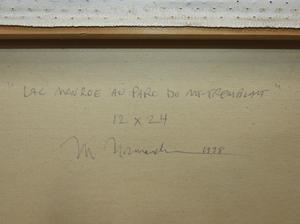 "LAC MONROE AU PARC DU MT-TREMBLANT"
12 x 24
M 1978